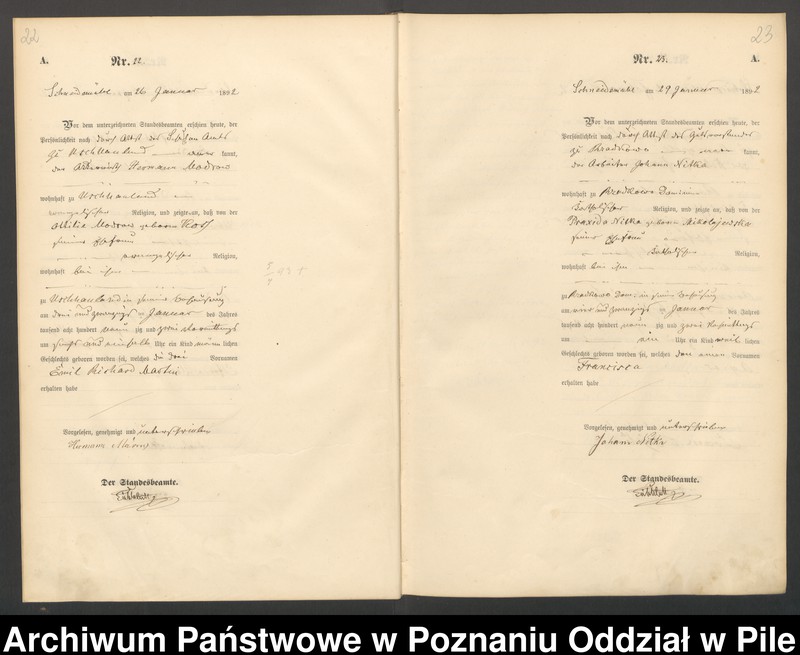 22
A.
Nr. 22.
Schneidemühl am 26 Januar 1892
Vor dem unterzeichneten Standesbeamten erschien heute, der
Persönlichkeit nach durch Attest des Amts
zu Usch Hauland kannt,
der Hermann
wohnhaft zu Usch Hauland
evangelischer Religion, und zeigte an, daß von der
geborene
seiner Ehefrau
evangelischer Religion,
wohnhaft bei ihm
zu Usch Hauland in seiner Behausung
am drei und zwanzigsten Januar des Jahres
tausend acht hundert neunzig und zwei Vormittags
um fünf und einhalb Uhr ein Kind männlichen
Geschlechts geboren worden sei, welches die drei Vornamen
Emil Richard Martin
erhalten habe
Vorgelesen, genehmigt und unterschrieben
Hermann
Der Standesbeamte.
23
Nr. 23.
A.
Schneidemühl am 29 Januar 1892
Vor dem unterzeichneten Standesbeamten erschien heute, der
Persönlichkeit nach durch Attest des Gutsvorstandes
zu kannt,
der Arbeiter Johann Nitka
wohnhaft zu
katholischer Religion, und zeigte an, daß von der
Nitka geborene Mikolajewska
seiner Ehefrau
katholischer Religion,
wohnhaft bei ihm
zu in seiner Behausung
am vier und zwanzigsten Januar des Jahres
tausend acht hundert neunzig und zwei Nachmittags
um ein Uhr ein Kind weiblichen
Geschlechts geboren worden sei, welches den einen Vornamen
Francisca
erhalten habe
Vorgelesen, genehmigt und unterschrieben
Johann Nitka
Der Standesbeamte.
Archiwum Państwowe w Poznaniu Oddział w Pile